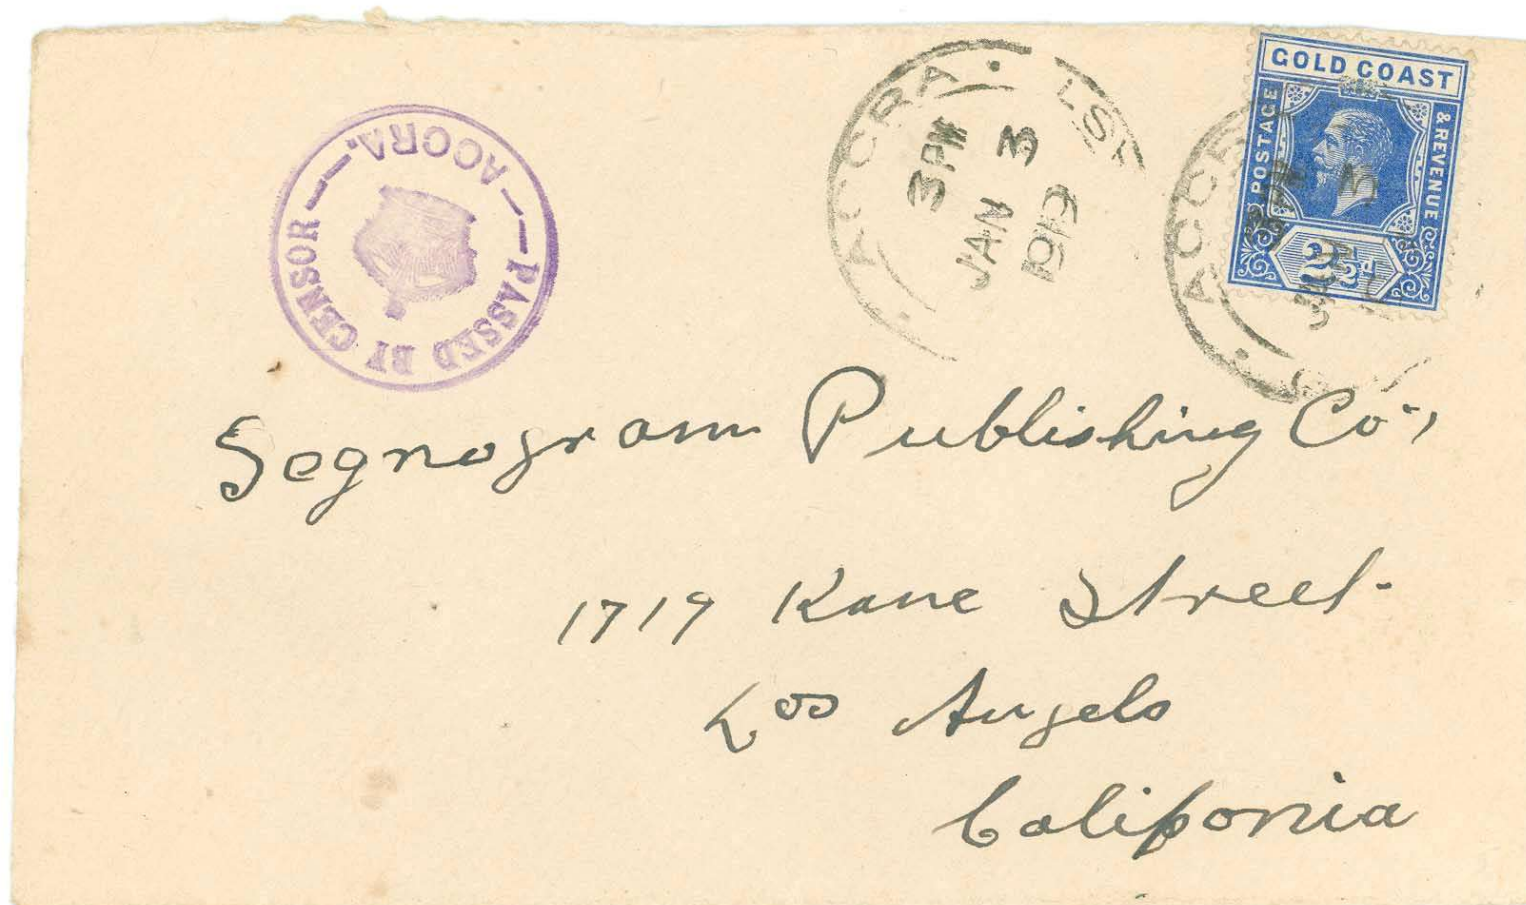 PASSED BY CENSOR
ACCRA.
ACCRA
3 PM
JAN 3
1919
GOLD COAST
POSTAGE
& REVENUE
2½d
ACC
JAN
Segnogram Publishing Co.,
1719 Kane Street.
Los Angels
California